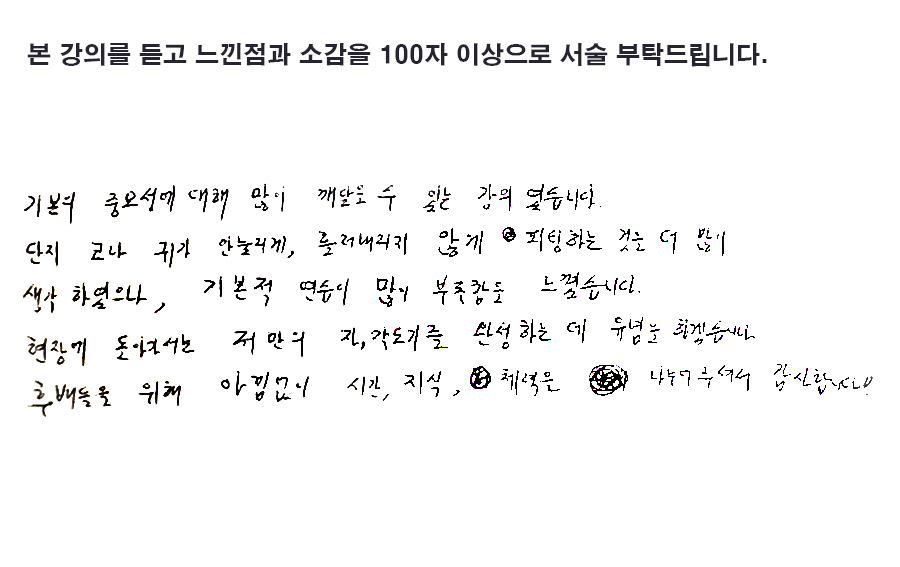 본 강의를 듣고 느낀점과 소감을 100자 이상으로 서술 부탁드립니다.
기본의 중요성에 대해 많이 깨달을 수 있는 강의 였습니다.
단지 코나 귀가 안눌리게, 흘러내리지 않게 피팅하는 것을 더 많이
생각 하였으나, 기본적 연습이 많이 부족함을 느꼈습니다.
현장에 돌아가서는 저 만의 자, 각도기를 완성하는 데 유념을 하겠습니다.
후배들을 위해 아낌없이 시간, 지식, 체력을 나누어주셔서 감사합니다!